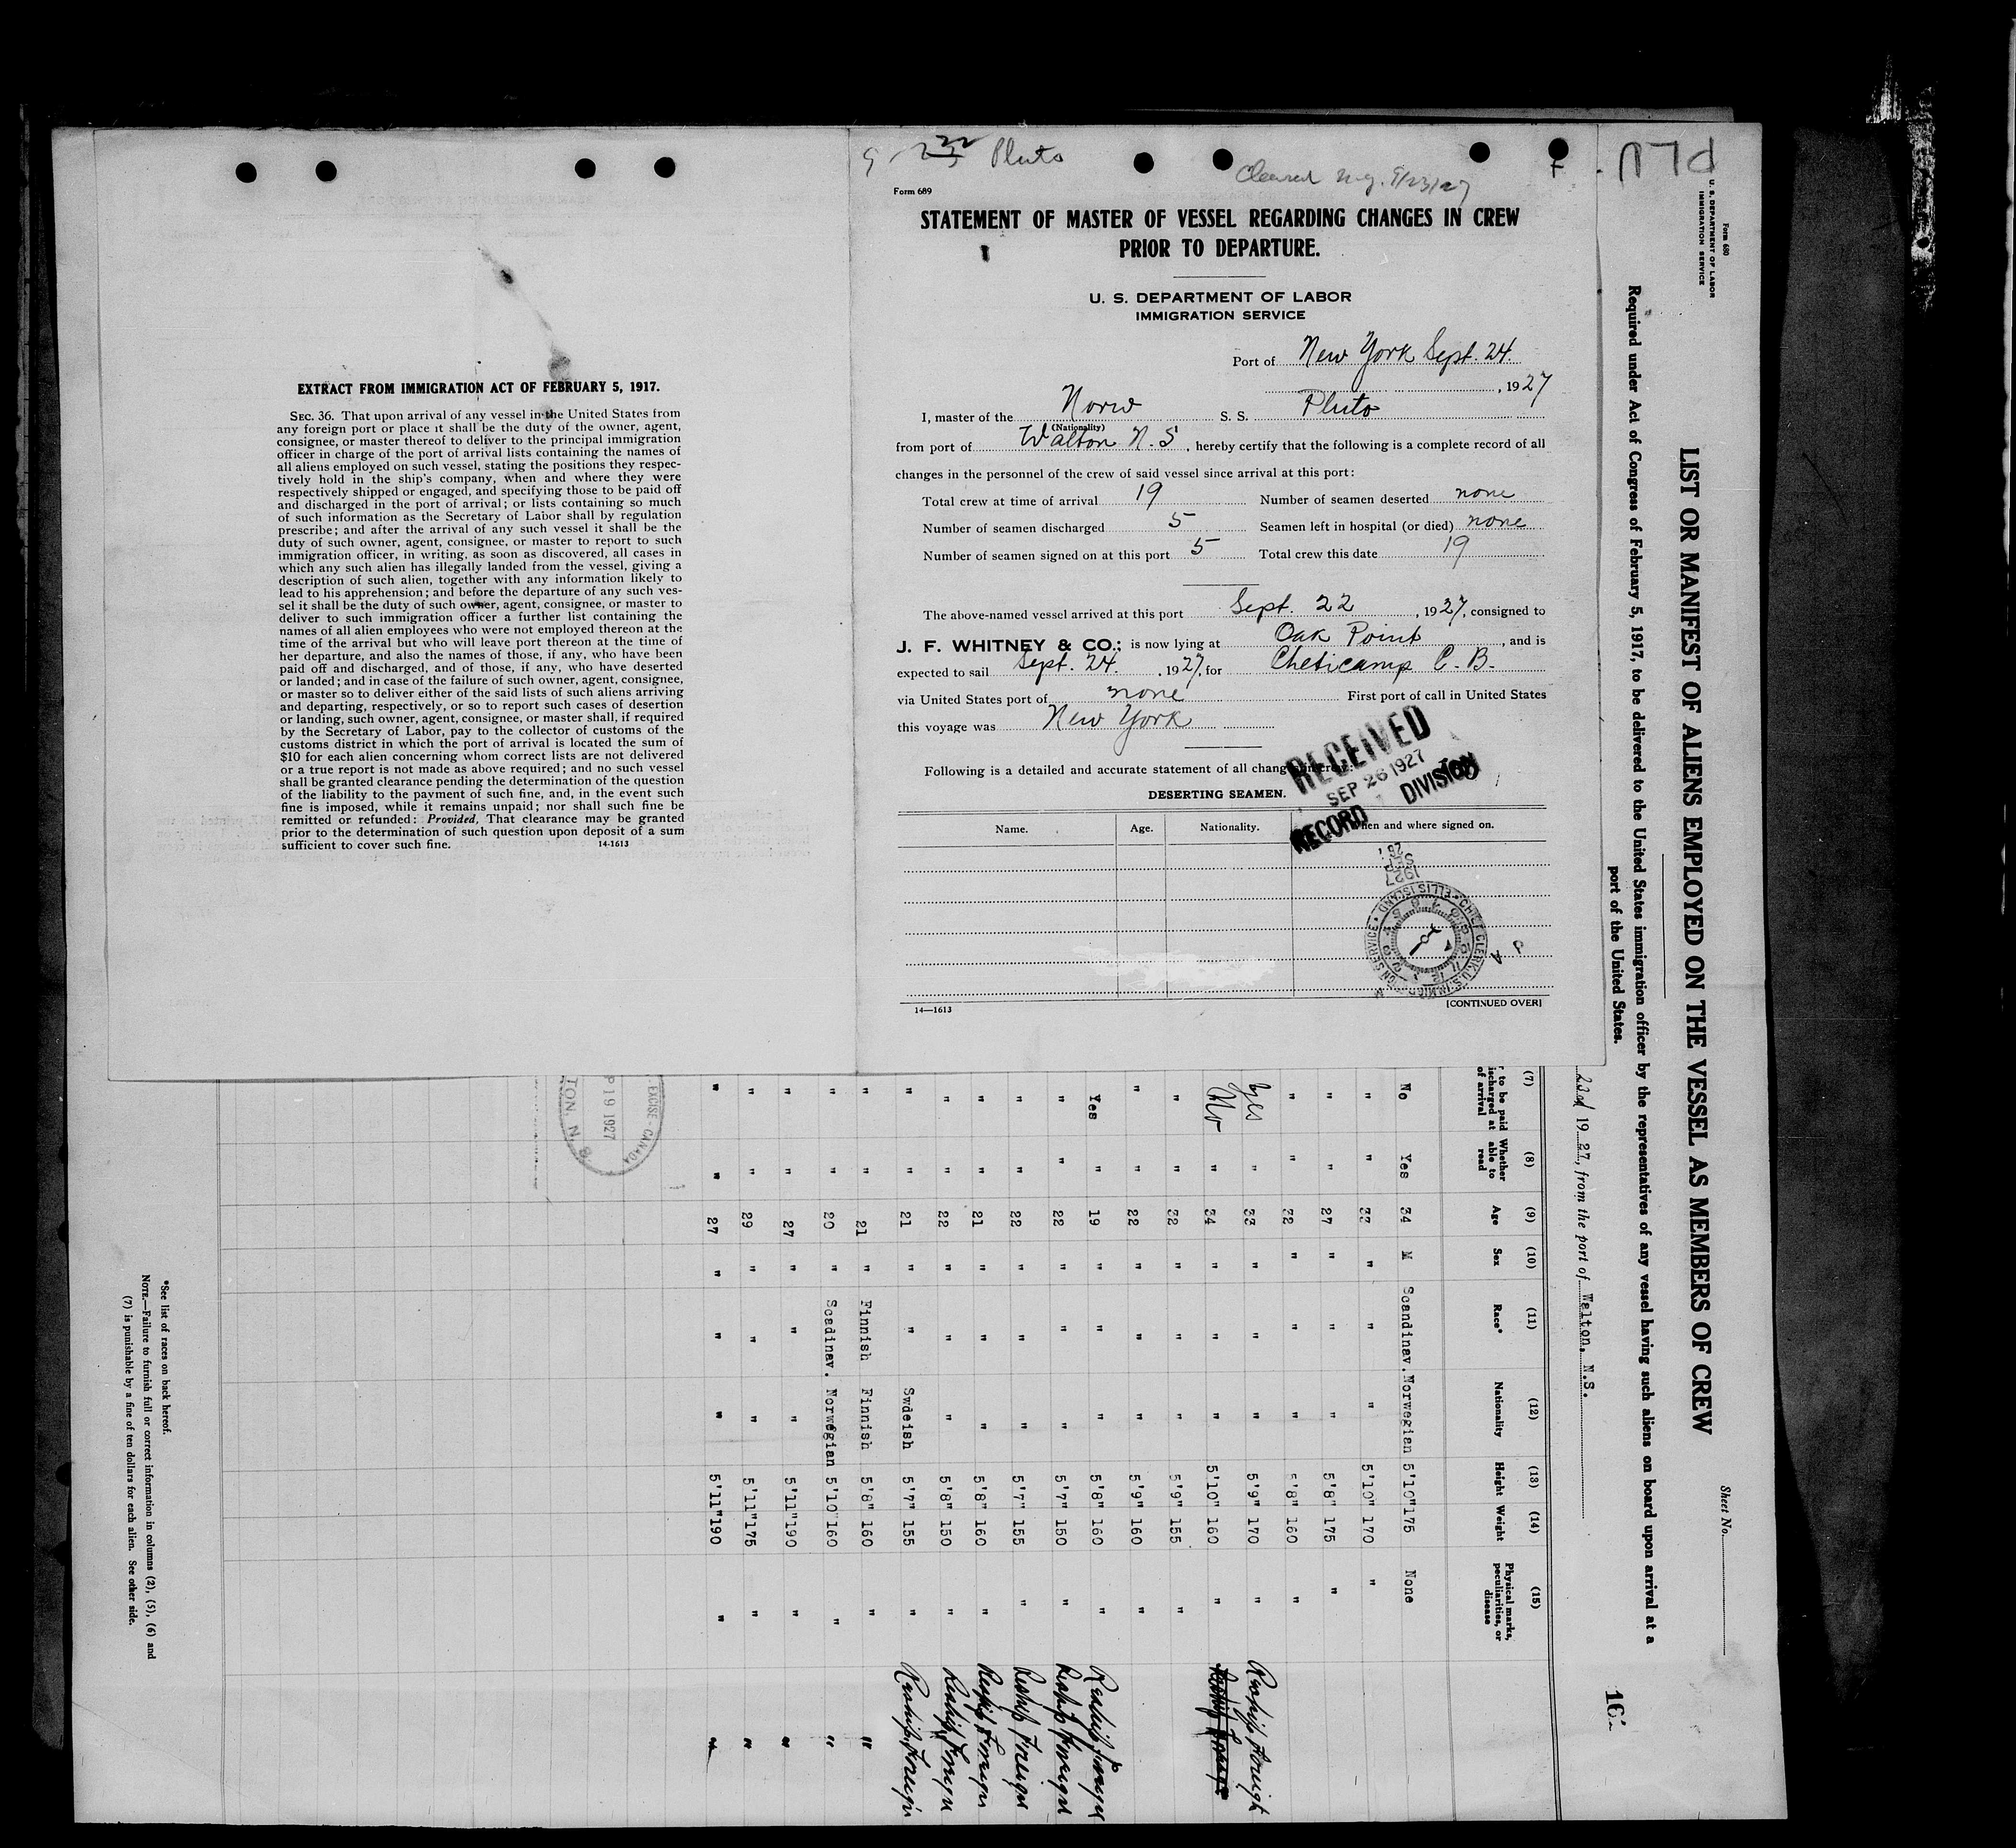 Pluto
Cleared
Form 689
STATEMENT OF MASTER OF VESSEL REGARDING CHANGES IN CREW
PRIOR TO DEPARTURE.
U. S. DEPARTMENT OF LABOR
IMMIGRATION SERVICE
Port of New York Sept. 24.
, 1927
I, master of the Norw S. S. Pluto
(Nationality)
from port of Walton N. S , hereby certify that the following is a complete record of all
changes in the personnel of the crew of said vessel since arrival at this port:
Total crew at time of arrival 19 Number of seamen deserted none
Number of seamen discharged 5 Seamen left in hospital (or died) none
Number of seamen signed on at this port 5 Total crew this date 19
The above-named vessel arrived at this port Sept. 22 , 1927, consigned to
J. F. WHITNEY & CO.; is now lying at Oak Point , and is
expected to sail Sept. 24. , 1927, for Cheticamp C. B.
via United States port of none First port of call in United States
this voyage was New York
Following is a detailed and accurate statement of all changes in crew:
RECEIVED
SEP 26 1927
RECORD DIVISION
DESERTING SEAMEN.
Name. Age. Nationality. When and where signed on.
14—1613 [CONTINUED OVER]
EXTRACT FROM IMMIGRATION ACT OF FEBRUARY 5, 1917.
SEC. 36. That upon arrival of any vessel in the United States from
any foreign port or place it shall be the duty of the owner, agent,
consignee, or master thereof to deliver to the principal immigration
officer in charge of the port of arrival lists containing the names of
all aliens employed on such vessel, stating the positions they respec-
tively hold in the ship's company, when and where they were
respectively shipped or engaged, and specifying those to be paid off
and discharged in the port of arrival; or lists containing so much
of such information as the Secretary of Labor shall by regulation
prescribe; and after the arrival of any such vessel it shall be the
duty of such owner, agent, consignee, or master to report to such
immigration officer, in writing, as soon as discovered, all cases in
which any such alien has illegally landed from the vessel, giving a
description of such alien, together with any information likely to
lead to his apprehension; and before the departure of any such ves-
sel it shall be the duty of such owner, agent, consignee, or master to
deliver to such immigration officer a further list containing the
names of all alien employees who were not employed thereon at the
time of the arrival but who will leave port thereon at the time of
her departure, and also the names of those, if any, who have been
paid off and discharged, and of those, if any, who have deserted
or landed; and in case of the failure of such owner, agent, consignee,
or master so to deliver either of the said lists of such aliens arriving
and departing, respectively, or so to report such cases of desertion
or landing, such owner, agent, consignee, or master shall, if required
by the Secretary of Labor, pay to the collector of customs of the
customs district in which the port of arrival is located the sum of
$10 for each alien concerning whom correct lists are not delivered
or a true report is not made as above required; and no such vessel
shall be granted clearance pending the determination of the question
of the liability to the payment of such fine, and, in the event such
fine is imposed, while it remains unpaid; nor shall such fine be
remitted or refunded: Provided, That clearance may be granted
prior to the determination of such question upon deposit of a sum
sufficient to cover such fine. 14-1613
PLU
Form 680
U. S. DEPARTMENT OF LABOR
IMMIGRATION SERVICE
Sheet No.
LIST OR MANIFEST OF ALIENS EMPLOYED ON THE VESSEL AS MEMBERS OF CREW
Required under Act of Congress of February 5, 1917, to be delivered to the United States immigration officer by the representatives of any vessel having such aliens on board upon arrival at a
port of the United States.
23rd 1927, from the port of Walton, N.S.
(7) (8) (9) (10) (11) (12) (13) (14) (15)
to be paid discharged at of arrival Whether able to read Age Sex Race* Nationality Height Weight Physical marks, peculiarities, or disease
No Yes 34 M Scandinav. Norwegian 5'10" 175 None
" " 33 " " " 5'10" 170 "
" " 27 " " " 5'8" 175 "
" " 32 " " " 5'8" 160 "
Yes " 33 " " " 5'9" 170 " Reship Foreign
No " 34 " " " 5'10" 160 "
" " 32 " " " 5'9" 155 "
" " 22 " " " 5'9" 160 "
Yes " 19 " " " 5'8" 160 " Reship Foreign
" " 22 " " " 5'7" 150 " Reship Foreign
" " 22 " " " 5'7" 155 " Reship Foreign
" " 21 " " " 5'8" 160 " Reship Foreign
" " 22 " " " 5'8" 150 " Reship Foreign
" " 21 " " Swdeish 5'7" 155 " Reship Foreign
" " 21 " Finnish Finnish 5'8" 160 " "
" " 20 " Scadinav. Norwegian 5'10" 160 " "
" " 27 " " " 5'11" 190 " "
" " 29 " " " 5'11" 175 " "
" " 27 " " " 5'11" 190 " "
EXCISE - CANADA
P 19 1927
TON, N. S.
*See list of races on back hereof.
NOTE.—Failure to furnish full or correct information in columns (2), (5), (6) and
(7) is punishable by a fine of ten dollars for each alien. See other side.